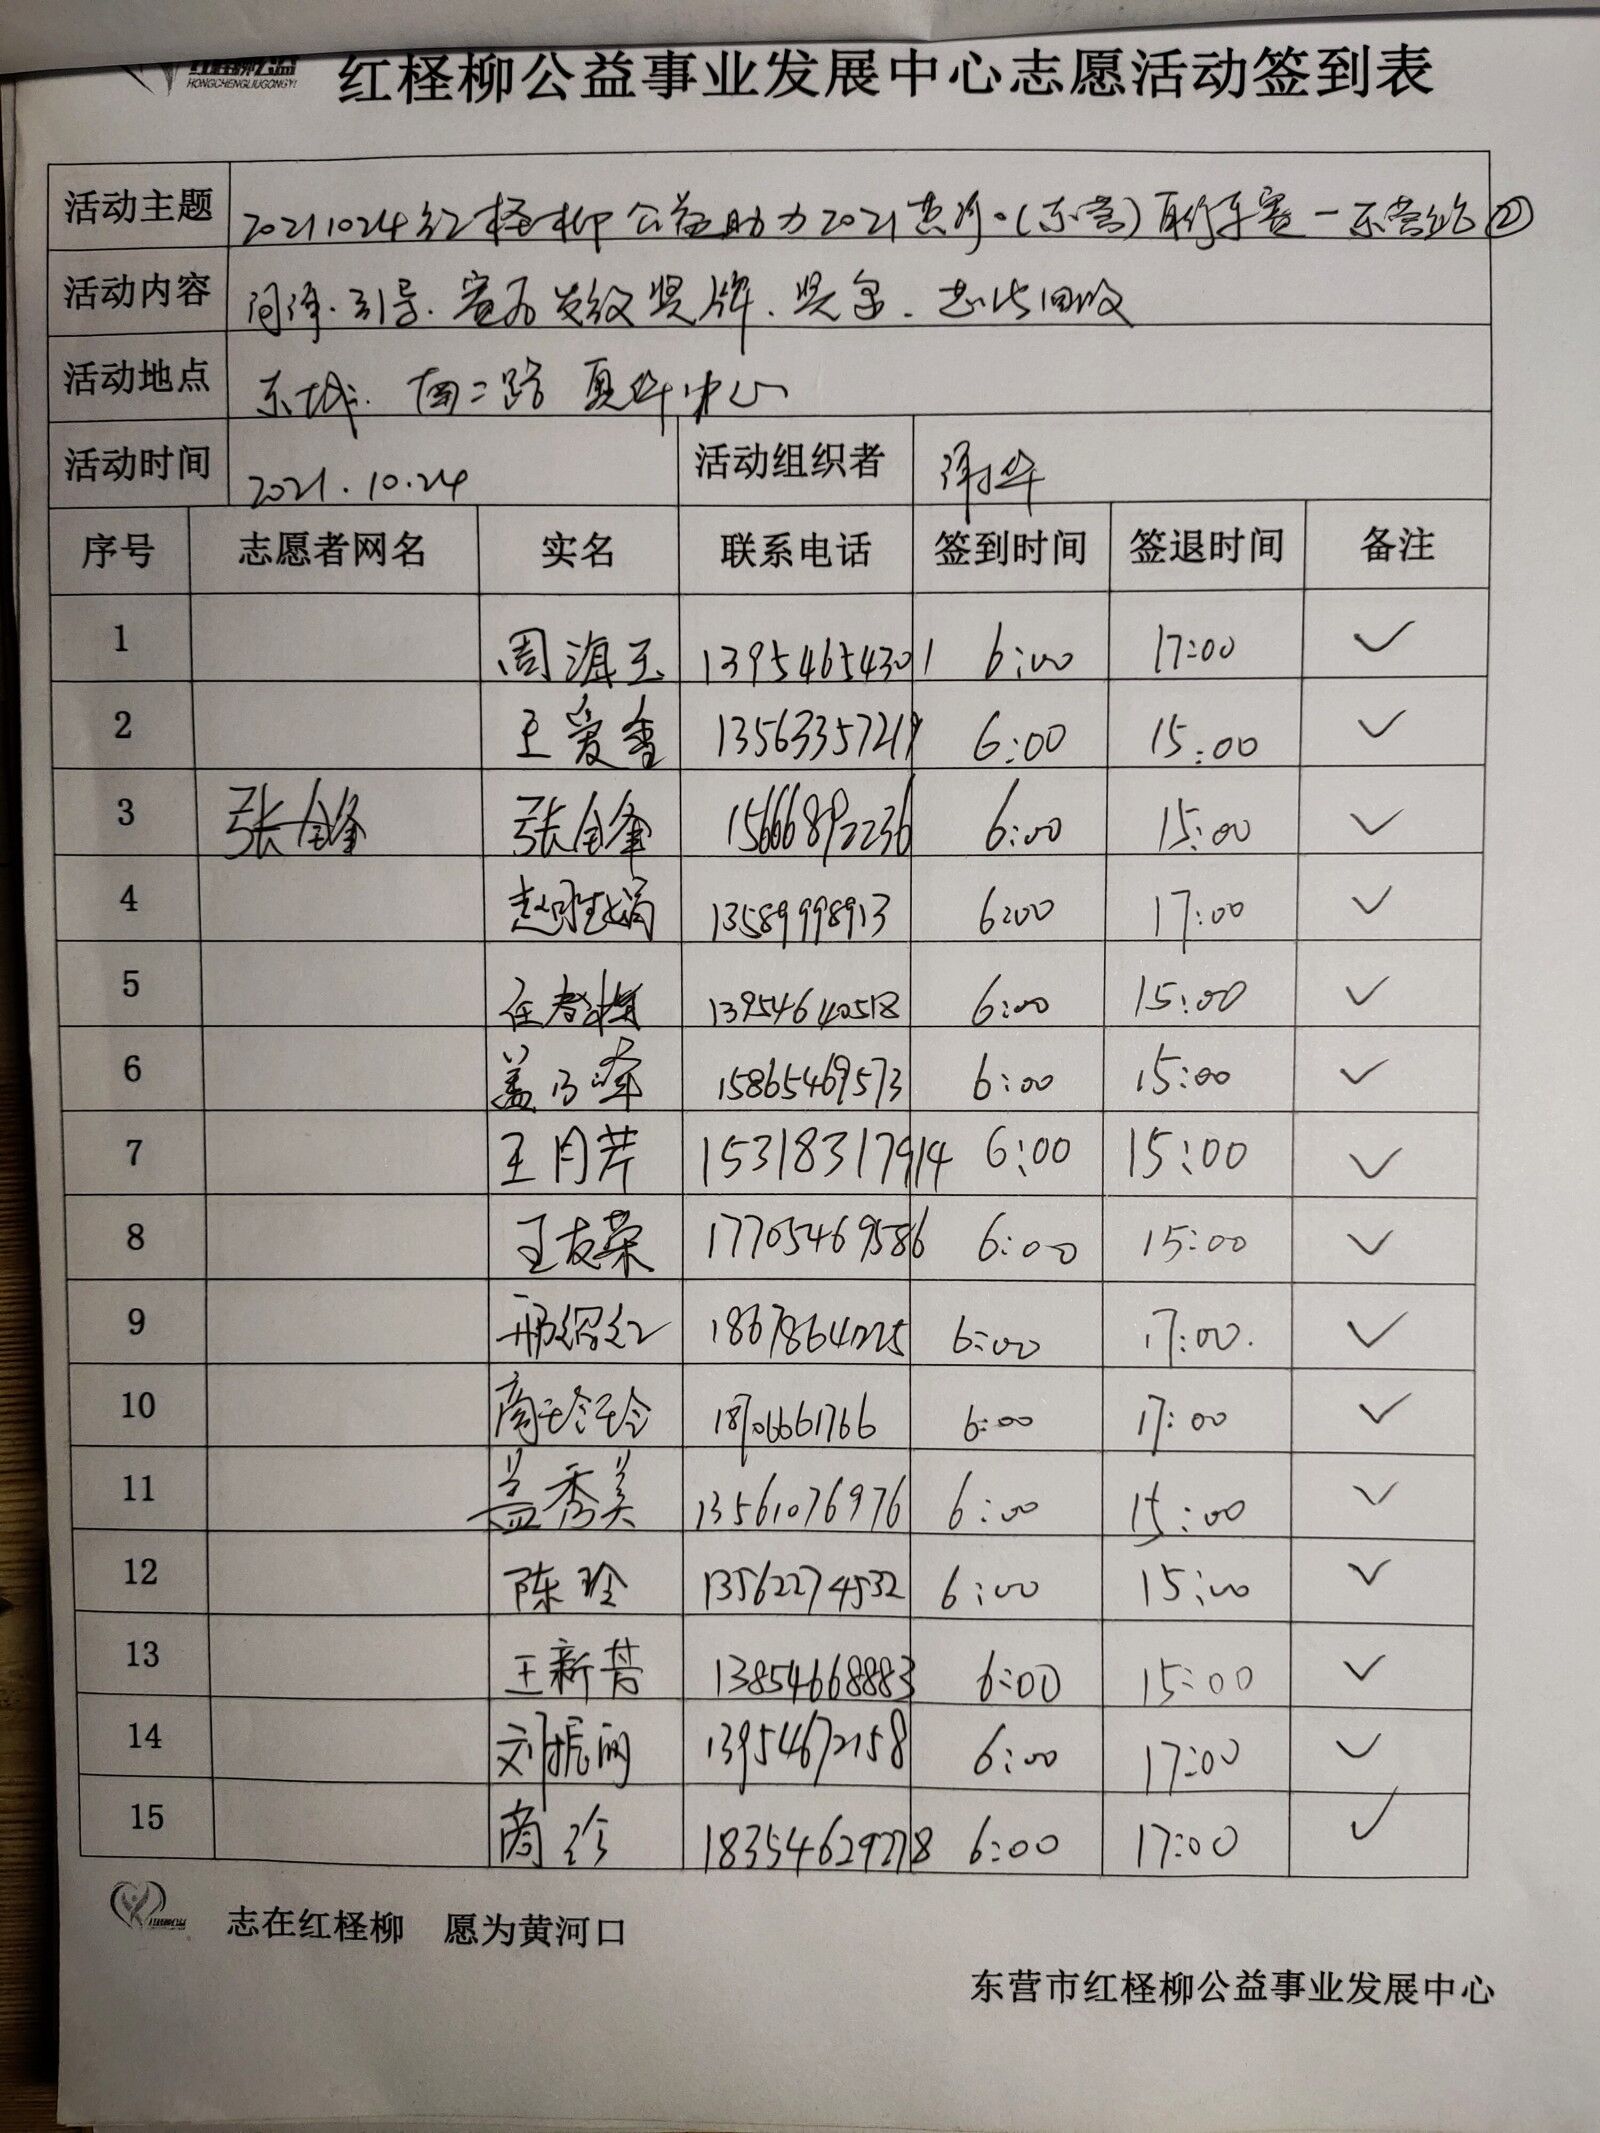 HONGCHENGLIUGONGYI
红柽柳公益事业发展中心志愿活动签到表
活动主题 20211024红柽柳公益助力2021黄河·(东营)自行车赛一东营站②
活动内容 引导. 发放奖牌、奖
活动地点 东城. 南二路 中心
活动时间 2021.10.24 活动组织者
序号 志愿者网名 实名 联系电话 签到时间 签退时间 备注
1 周海玉 13954654301 6:00 17:00 ✓
2 王爱香 13563357219 6:00 15:00 ✓
3 张全峰 张全峰 15666892236 6:00 15:00 ✓
4 赵胜娟 13589998913 6:00 17:00 ✓
5 任春梅 13954640518 6:00 15:00 ✓
6 盖乃峰 15865469573 6:00 15:00 ✓
7 王月芹 15318317914 6:00 15:00 ✓
8 王友荣 17705469586 6:00 15:00 ✓
9 邢绍红 6:00 17:00. ✓
10 商玲玲 18706661766 6:00 17:00 ✓
11 盖秀美 13561076976 6:00 15:00 ✓
12 陈玲 13562274532 6:00 15:00 ✓
13 王新芳 13854668883 6:00 15:00 ✓
14 刘振 13954672158 6:00 17:00 ✓
15 商玲 18354629278 6:00 17:00 ✓
志在红柽柳 愿为黄河口
东营市红柽柳公益事业发展中心